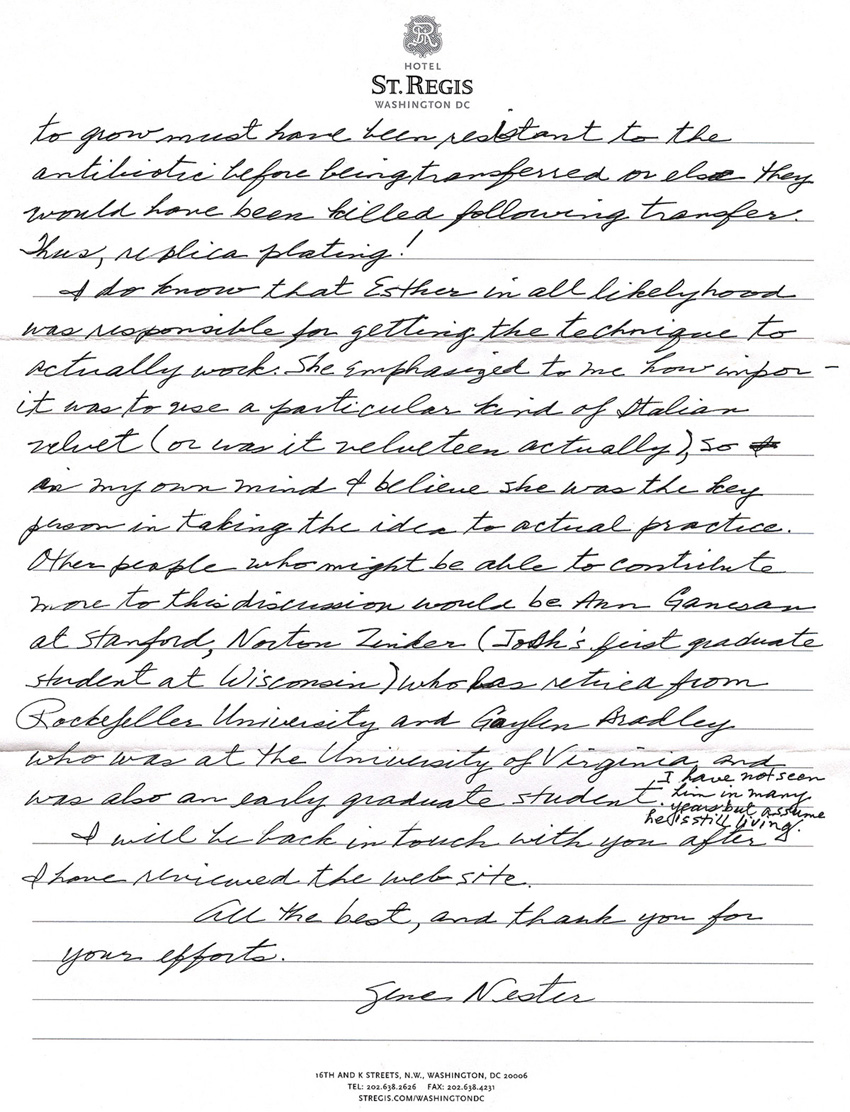 HOTEL
ST. REGIS
WASHINGTON DC
to grow must have been resistant to the
antibiotic before being transferred or else they
would have been killed following transfer.
Thus, replica plating!
I do know that Esther in all likelyhood
was responsible for getting the technique to
actually work. She emphasized to me how impor-
it was to use a particular kind of Italian
velvet (or was it velveteen actually), so
in my own mind I believe she was the key
person in taking the idea to actual practice.
Other people who might be able to contribute
more to this discussion would be Ann Ganesan
at Stanford, Norton Zinder (Josh's first graduate
student at Wisconsin) who has retried from
Rockefeller University and Gaylen Bradley
who was at the University of Virginia and
was also an early graduate student.
I have not seen
him in many
years but assume
he is still living.
I will be back in touch with you after
I have reviewed the web site.
All the best, and thank you for
your efforts.
Gene Nester
16TH AND K STREETS, N.W., WASHINGTON, DC 20006
TEL: 202.638.2626 FAX: 202.638.4231
STREGIS.COM/WASHINGTONDC